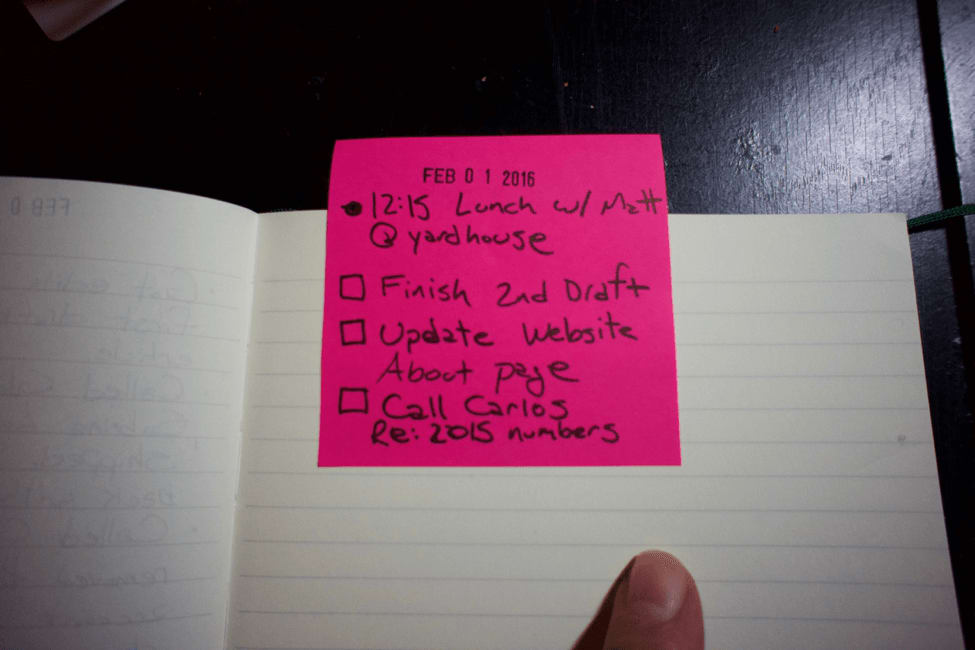 FEB 0 1 2016
12:15 Lunch w/ Matt
@ yardhouse
Finish 2nd Draft
Update Website
About page
Call Carlos
Re: 2015 numbers
FEB 0
Called
Called